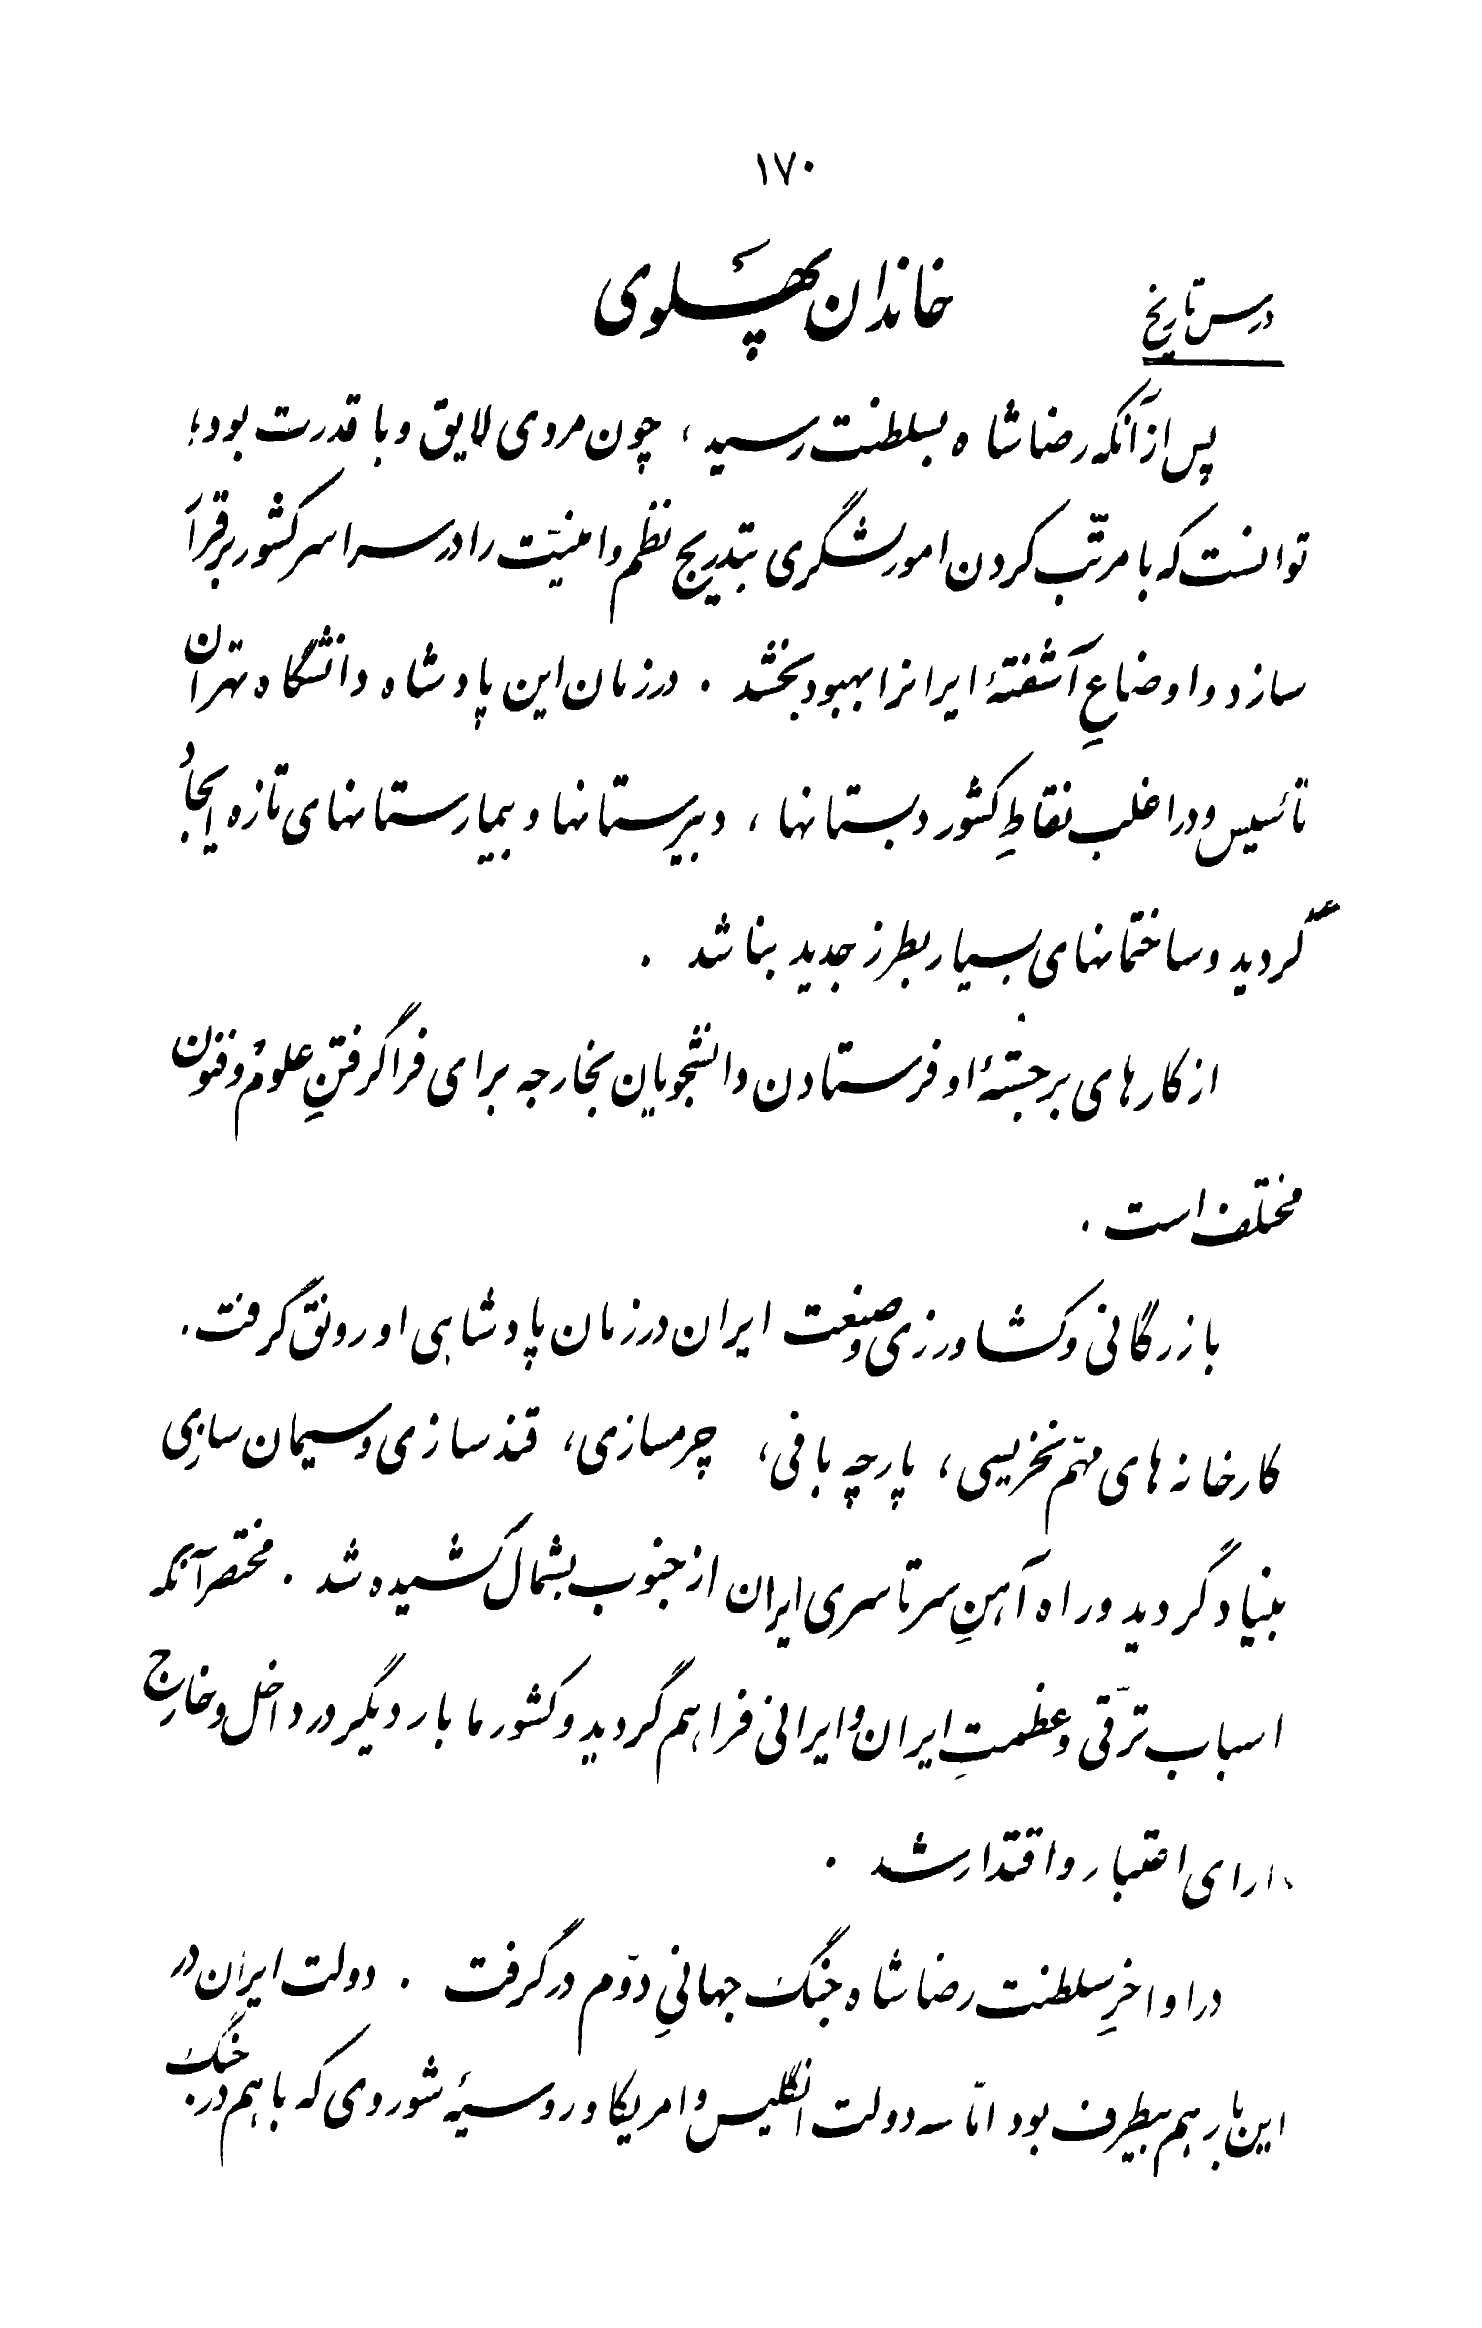 ۱۷۰
درس تاریخ
خاندان پهلوی
پس از آنکه رضا شاه بسلطنت رسید ، چون مردی لایق و با قدرت بود ؛
توانست که با مرتّب کردن امور لشگری بتدریج نظم و امنیّت را در سراسر کشور برقرا
سازد و اوضاعِ آشفتهٔ ایرانرا بهبود بخشد . در زمان این پادشاه دانشگاه تهران
تأسیس و در اغلب نقاطِ کشور دبستانها ، دبیرستانها و بیمارستانهای تازه ایجاد
گردید و ساختمانهای بسیار بطرز جدید بنا شد .
از کارهای برجستهٔ او فرستادن دانشجویان بخارجه برای فرا گرفتنِ علوم و فنون
مختلف است .
بازرگانی و کشاورزی و صنعت ایران در زمان پادشاهی او رونق گرفت .
کارخانه های مهّم نخریسی ، پارچه بافی ، چرمسازی ، قند سازی و سیمان سازی
بنیاد گردید و راه آهنِ سرتاسری ایران از جنوب بشمال کشیده شد . مختصر آنکه
اسباب ترقّی و عظمتِ ایران و ایرانی فراهم گردید و کشور ما بار دیگر در داخل و خارج
دارای اعتبار و اقتدار شد .
در اواخرِ سلطنت رضا شاه جنگ جهانیِ دوّم در گرفت . دولت ایران در
این بار هم بیطرف بود امّا سه دولت انگلیس و امریکا و روسیهٔ شوروی که با هم در جنگ